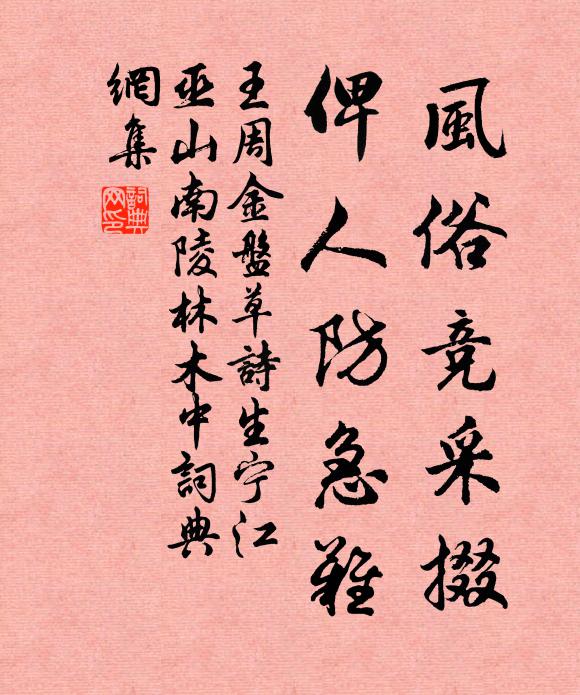 風俗竞采掇
俾人防急難
王周金盤草詩生宁江
巫山南陵林木中詞典
網集
詞典网印